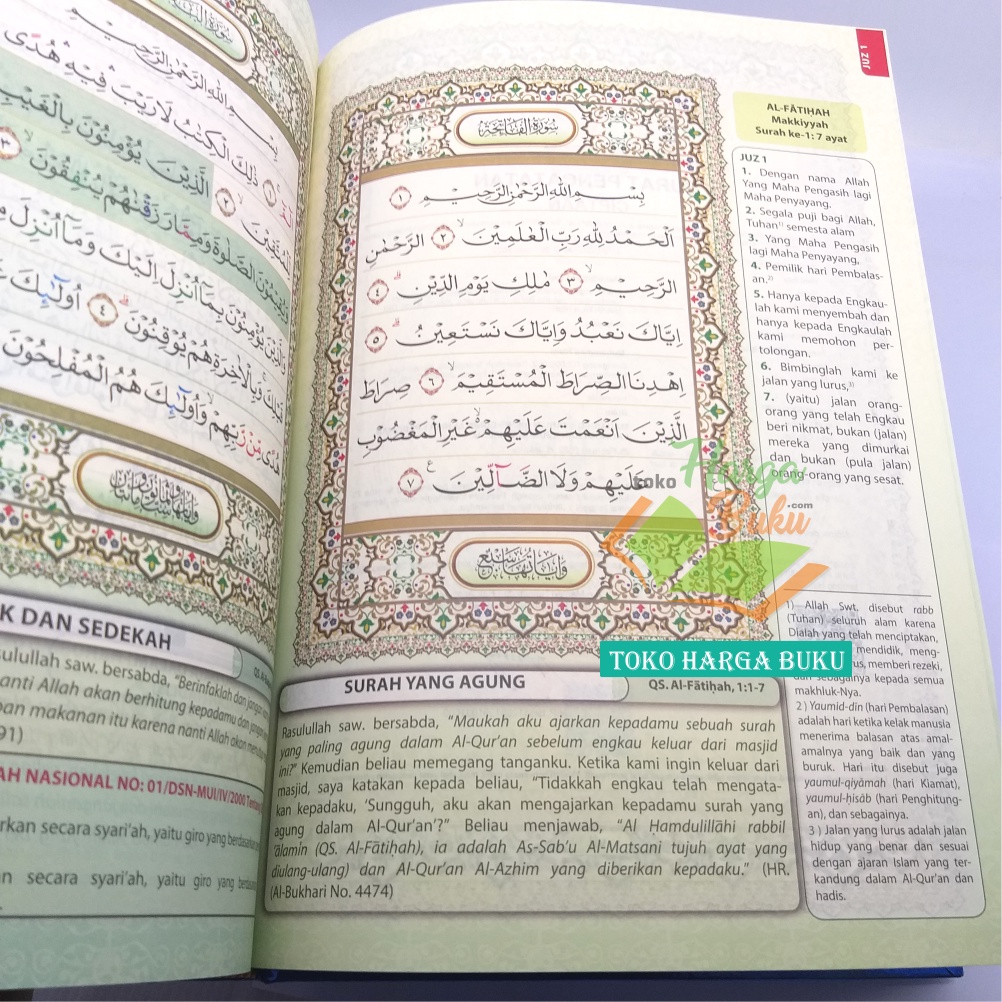 JUZ 1
AL-FĀTIḤAH
Makkiyyah
Surah ke-1: 7 ayat
سُورَةُ الْفَاتِحَةِ
بِسْمِ اللّٰهِ الرَّحْمٰنِ الرَّحِيْمِ ۝١
اَلْحَمْدُ لِلّٰهِ رَبِّ الْعٰلَمِيْنَۙ ۝٢ الرَّحْمٰنِ
الرَّحِيْمِۙ ۝٣ مٰلِكِ يَوْمِ الدِّيْنِۗ ۝٤
اِيَّاكَ نَعْبُدُ وَاِيَّاكَ نَسْتَعِيْنُۗ ۝٥
اِهْدِنَا الصِّرَاطَ الْمُسْتَقِيْمَۙ ۝٦ صِرَاطَ
الَّذِيْنَ اَنْعَمْتَ عَلَيْهِمْۙ غَيْرِ الْمَغْضُوْبِ
عَلَيْهِمْ وَلَا الضَّاۤلِّيْنَࣖ ۝٧
وَاٰيَاتُهَا سَبْعٌ
JUZ 1
1. Dengan nama Allah
Yang Maha Pengasih lagi
Maha Penyayang.
2. Segala puji bagi Allah,
Tuhan¹⁾ semesta alam
3. Yang Maha Pengasih
lagi Maha Penyayang,
4. Pemilik hari Pembalas-
an.²⁾
5. Hanya kepada Engkau-
lah kami menyembah dan
hanya kepada Engkaulah
kami memohon per-
tolongan.
6. Bimbinglah kami ke
jalan yang lurus,³⁾
7. (yaitu) jalan orang-
orang yang telah Engkau
beri nikmat, bukan (jalan)
mereka yang dimurkai
dan bukan (pula jalan)
orang-orang yang sesat.
1) Allah Swt. disebut rabb
(Tuhan) seluruh alam karena
Dialah yang telah menciptakan,
mendidik, meng-
us, memberi rezeki,
dan sebagainya kepada semua
makhluk-Nya.
2 ) Yaumid-dīn (hari Pembalasan)
adalah hari ketika kelak manusia
menerima balasan atas amal-
amalnya yang baik dan yang
buruk. Hari itu disebut juga
yaumul-qiyāmah (hari Kiamat),
yaumul-ḥisāb (hari Penghitung-
an), dan sebagainya.
3 ) Jalan yang lurus adalah jalan
hidup yang benar dan sesuai
dengan ajaran Islam yang ter-
kandung dalam Al-Qur'an dan
hadis.
SURAH YANG AGUNG
QS. Al-Fātiḥah, 1:1-7
Rasulullah saw. bersabda, "Maukah aku ajarkan kepadamu sebuah surah
yang paling agung dalam Al-Qur'an sebelum engkau keluar dari masjid
ini?" Kemudian beliau memegang tanganku. Ketika kami ingin keluar dari
masjid, saya katakan kepada beliau, "Tidakkah engkau telah mengata-
kan kepadaku, 'Sungguh, aku akan mengajarkan kepadamu surah yang
agung dalam Al-Qur'an'?" Beliau menjawab, "Al Ḥamdulillāhi rabbil
'ālamīn (QS. Al-Fātiḥah), ia adalah As-Sab'u Al-Matsani tujuh ayat yang
diulang-ulang) dan Al-Qur'an Al-Azhim yang diberikan kepadaku." (HR.
(Al-Bukhari No. 4474)
toko Harga
Buku .com
TOKO HARGA BUKU
بِسْمِ اللّٰهِ الرَّحْمٰنِ الرَّحِيْمِ
ذٰلِكَ الْكِتٰبُ لَا رَيْبَ ۛ فِيْهِ ۛ هُدًى
الَّذِيْنَ يُؤْمِنُوْنَ بِالْغَيْبِ
وَيُقِيْمُوْنَ الصَّلٰوةَ وَمِمَّا رَزَقْنٰهُمْ يُنْفِقُوْنَ ۝٣
وَالَّذِيْنَ يُؤْمِنُوْنَ بِمَآ اُنْزِلَ اِلَيْكَ وَمَآ اُنْزِلَ مِنْ
قَبْلِكَ وَبِالْاٰخِرَةِ هُمْ يُوْقِنُوْنَۗ ۝٤ اُولٰۤىِٕكَ
هُدًى مِّنْ رَّبِّهِمْ وَاُولٰۤىِٕكَ هُمُ الْمُفْلِحُوْنَ
K DAN SEDEKAH
sulullah saw. bersabda, "Berinfaklah dan jangan
nanti Allah akan berhitung kepadamu dan jangan
pan makanan itu karena nanti Allah akan
91)
AH NASIONAL NO: 01/DSN-MUI/IV/2000
rkan secara syari'ah, yaitu giro yang
an secara syari'ah, yaitu giro yang